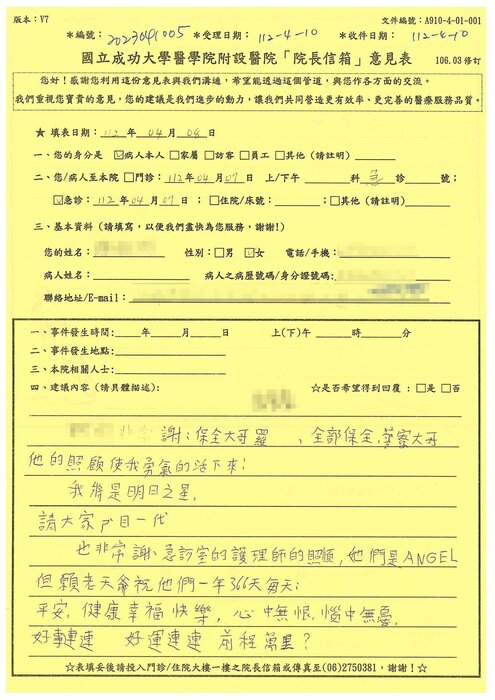 版本：V7 文件編號：A910-4-01-001
＊編號：2023041005 ＊受理日期：112-4-10 ＊收件日期：112-4-10
國立成功大學醫學院附設醫院「院長信箱」意見表 106.03修訂
您好！感謝您利用這份意見表與我們溝通，希望能透過這個管道，與您作各方面的交流。
我們重視您寶貴的意見，您的建議是我們進步的動力，讓我們共同營造更有效率、更完善的醫療服務品質。
★ 填表日期：112年04月08日
一、您的身分是 ☑病人本人 □家屬 □訪客 □員工 □其他（請註明）
二、您/病人至本院 □門診：112年04月07日 上/下午 科 急 診 號；
☑急診：112年04月07日；□住院/床號：；□其他（請註明）
三、基本資料（請填寫，以便我們盡快為您服務，謝謝！）
您的姓名： 性別：□男 ☑女 電話/手機：
病人姓名： 病人之病歷號碼/身分證號碼：
聯絡地址/E-mail：
一、事件發生時間： 年 月 日 上(下)午 時 分
二、事件發生地點：
三、本院相關人士：
四、建議內容（請具體描述）： ☆是否希望得到回覆：□是 □否
非常謝：保全大哥羅 、全部保全，警察大哥
他的照顧使我勇氣的活下來：
我將是明日之星，
請大家 目一代
也非常謝：急診室的護理師的照顧，她們是ANGEL
但願老天爺祝他們一年366天每天：
平安，健康幸福快樂，心中無恨，惱中無憂，
好事連連 好運連連 前程萬里？
☆表填妥後請投入門診/住院大樓一樓之院長信箱或傳真至(06)2750381，謝謝！☆